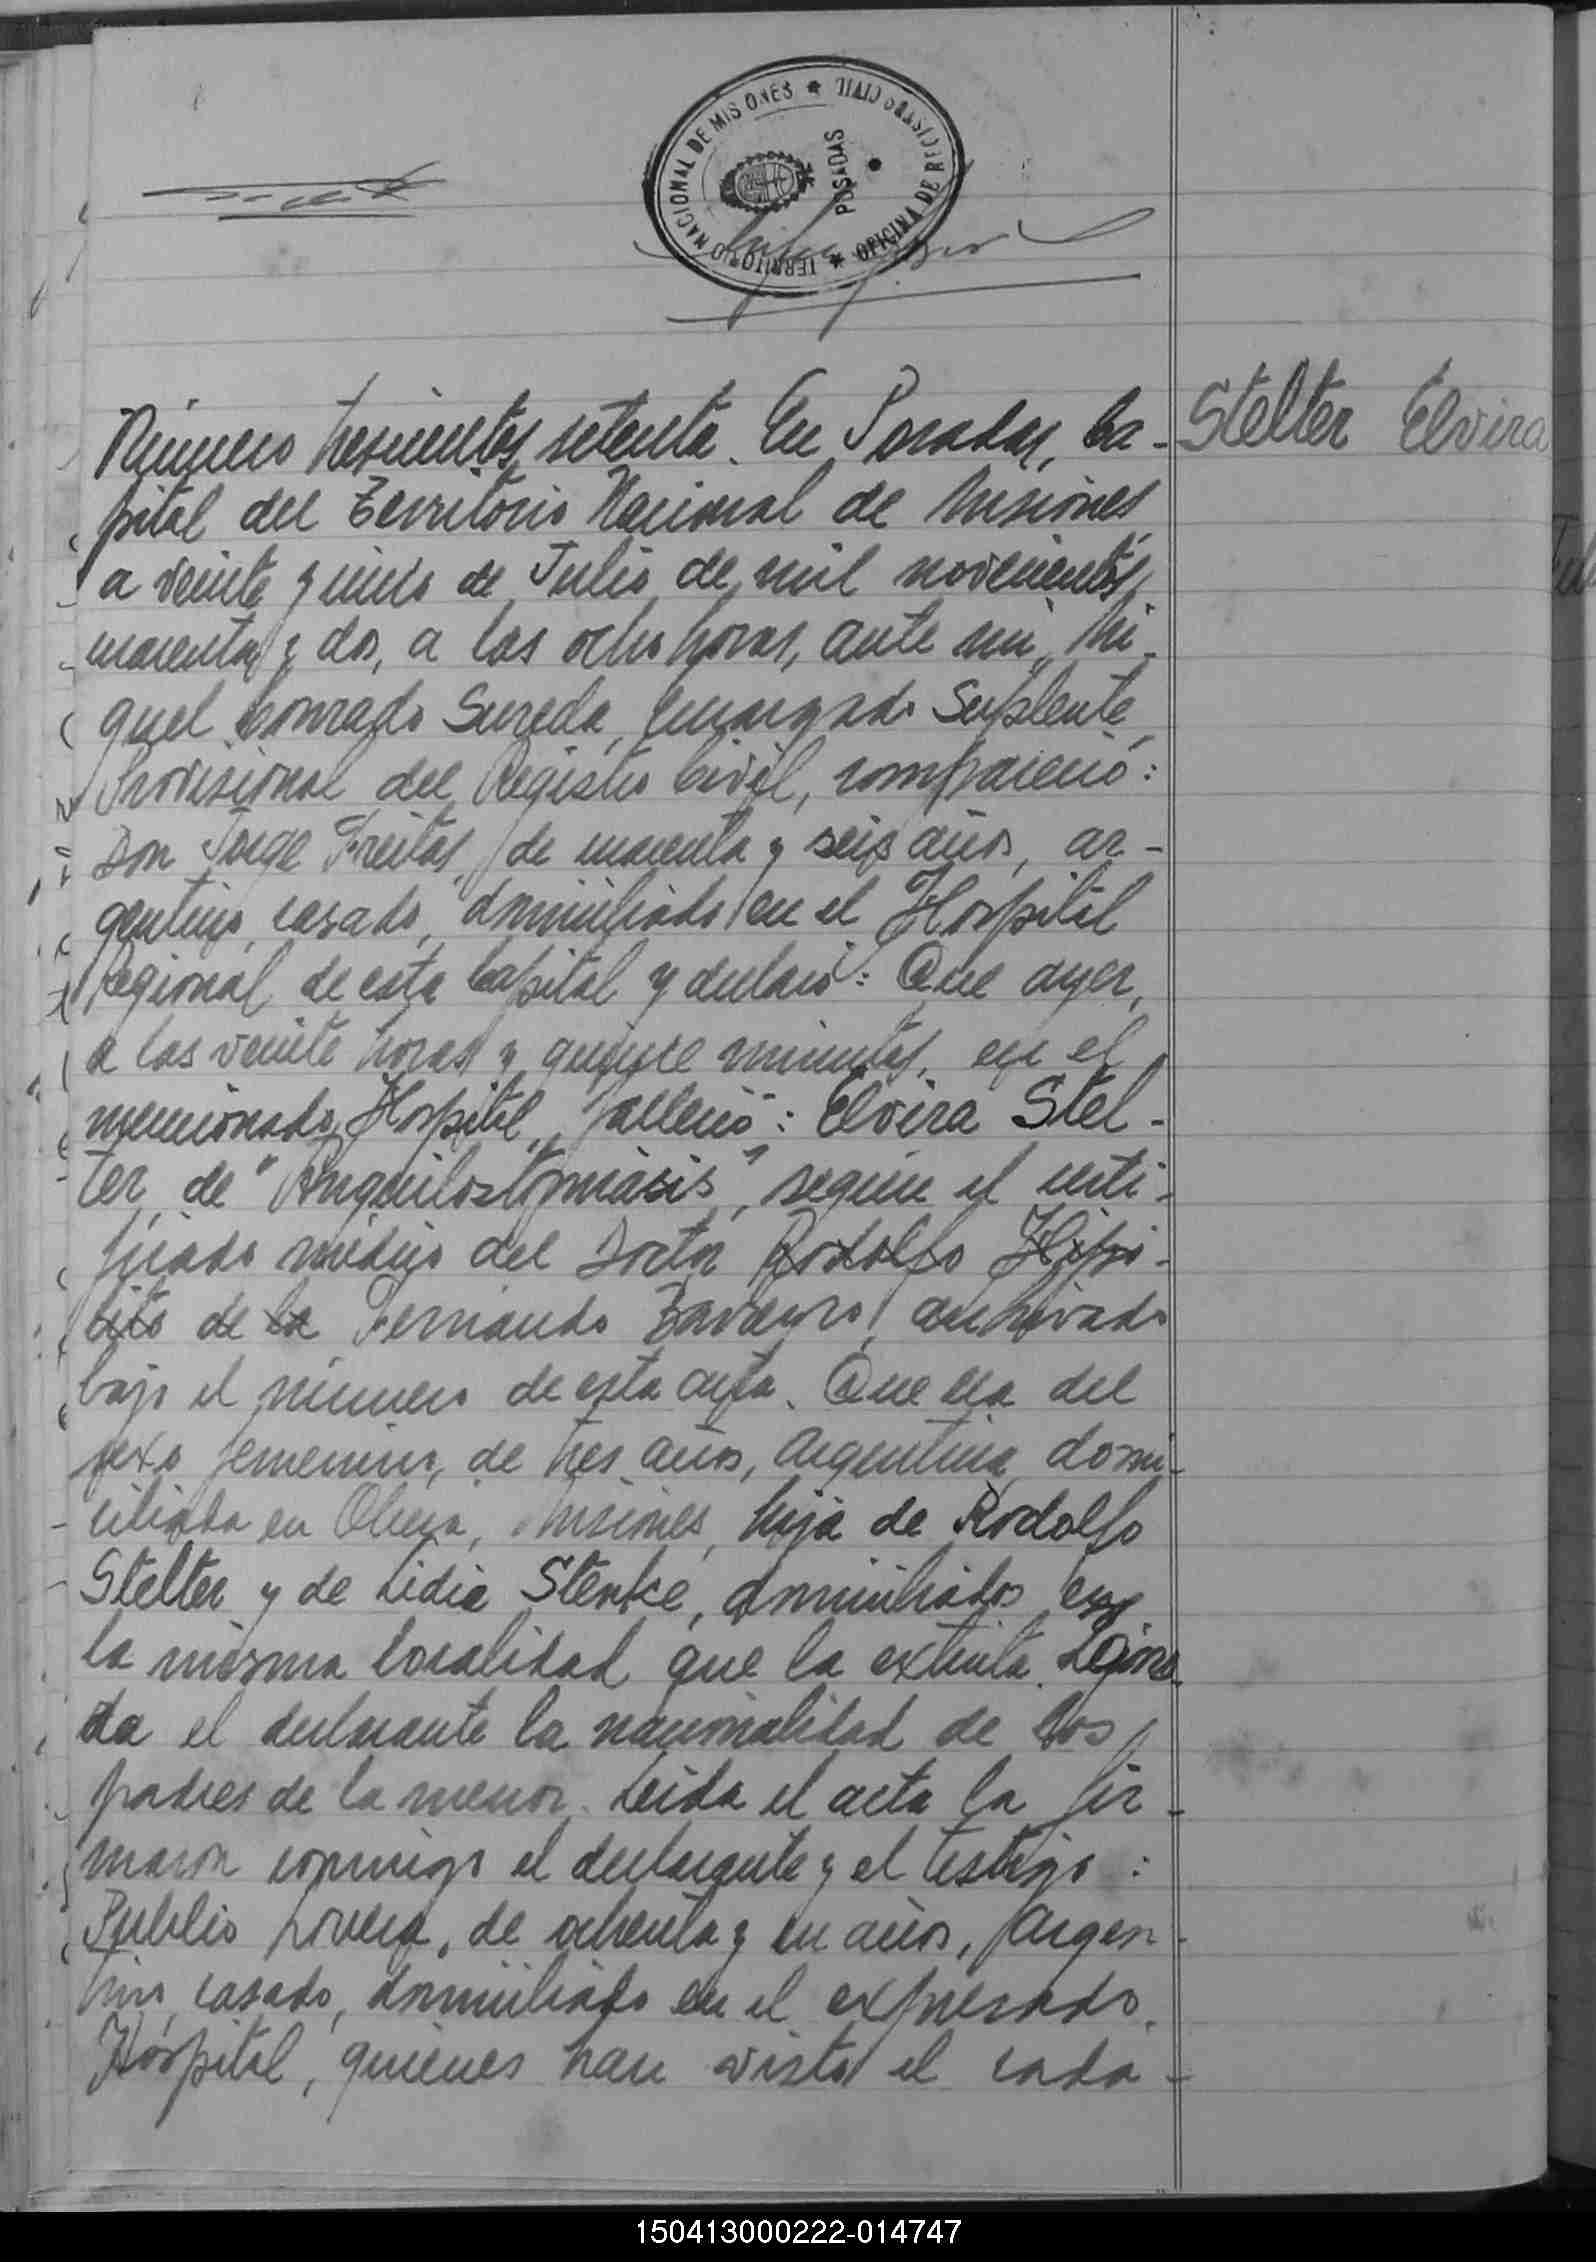 TERRITORIO NACIONAL DE MISIONES * OFICINA DE REGISTRO CIVIL *
POSADAS
Stelter Elvira
Número trescientos setenta. En Posadas, Ca-
pital del Territorio Nacional de Misiones
a veinte y cinco de Julio de mil novecientos
cuarenta y dos, a las ocho horas, ante mi, Mi-
guel Conrado Sureda, Encargado Suplente
Provisional del Registro Civil, compareció:
Don Jorge Freitas, de cuarenta y seis años, ar-
gentino, casado, domiciliado en el Hospital
Regional de esta Capital y declaró: Que ayer,
a las veinte horas y quince minutos, en el
mencionado Hospital, falleció: Elvira Stel-
ter, de "Anquilostomiásis", según el certi-
ficado médico del Doctor Rodolfo Hipó-
lito de la Fernando Barreyro, archivado
bajo el número de esta acta. Que era del
sexo femenino, de tres años, argentina, domi-
ciliada en Oberá, Misiones, hija de Rodolfo
Stelter y de Lidia Stenke, domiciliados en
la misma localidad que la extinta.
da el declarante la nacionalidad de los
padres de la menor. Leida el acta la fir-
maron conmigo el declarante y el testigo:
Publio de ochenta y un años, Argen-
tino, casado, domiciliado en el expresado
Hospital, quienes han visto el cada-
150413000222-014747